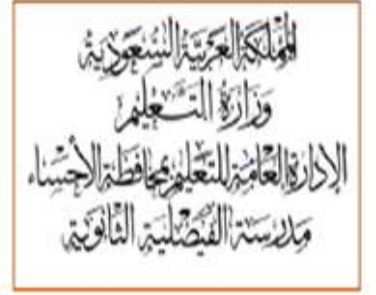 المملكة العربية السعودية
وزارة التعليم
الإدارة العامة للتعليم بمحافظة الأحساء
مدرسة الفيصلية الثانوية